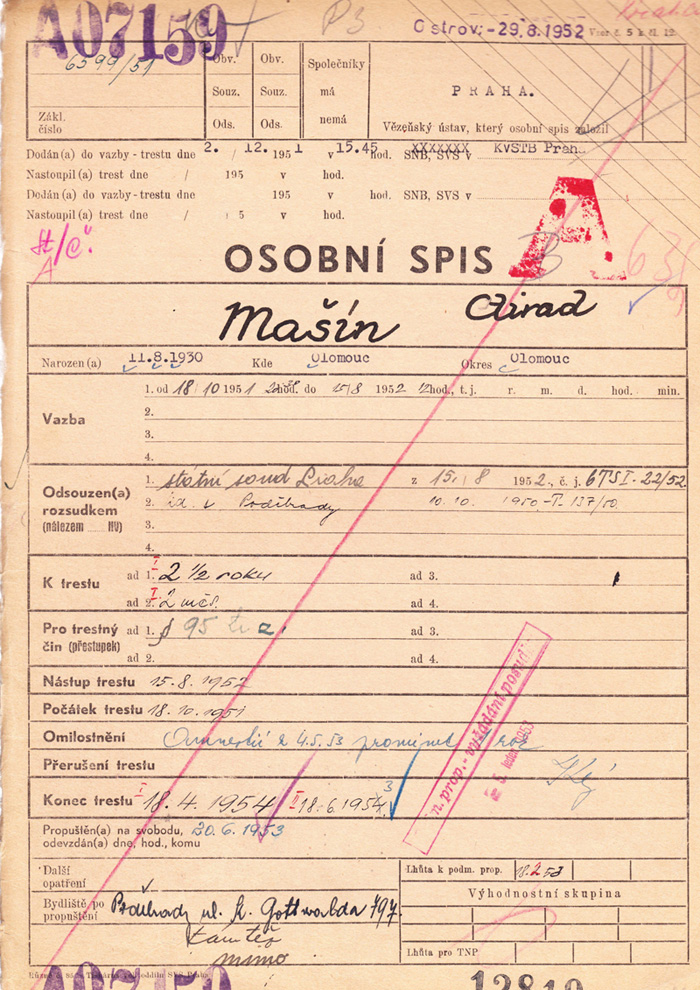 A07159
Ostrov: -29.8.1952 Vzor č. 5 k čl. 12
6599/51
Zákl. číslo
Obv. Obv. Společníky
Souz. Souz. má
Ods. Ods. nemá
PRAHA.
Vězeňský ústav, který osobní spis založil
Dodán(a) do vazby - trestu dne 2. / 12. 195 1 v 15.45 hod. SNB, SVS v KVSTB Praha
Nastoupil (a) trest dne / 195 v hod.
Dodán (a) do vazby - trestu dne 195 v hod. SNB, SVS v
Nastoupil (a) trest dne / 5 v hod.
A
OSOBNÍ SPIS
Mašín Ctirad
Narozen (a) 11.8.1930 Kde Olomouc Okres Olomouc
Vazba
1. od 18 / 10 195 1 hod. do 15 / 8 195 2 12 hod., t. j. r. m. d. hod. min.
2.
3.
4.
Odsouzen(a) rozsudkem (nálezem NV)
1. státní soud Praha z 15. / 8 195 2., č. j. 6TSI-22/52
2. v Poděbrady 10.10. 1950-T 137/50.
3.
4.
K trestu ad 1. 2 1/2 roku ad 3.
ad 2. 2 měs. ad 4.
Pro trestný čin (přestupek) ad 1. § 95 tr. z. ad 3.
ad 2. ad 4.
Nástup trestu 15.8.1952
Počátek trestu 18.10.1951
Omilostnění Amnestií z 4.5.53 prominut 1 rok
Přerušení trestu
Konec trestu I 18.4.1954 II 18.6.1954 3
n. prop. - vyžádání posud.
Propuštěn(a) na svobodu, odevzdán(a) dne, hod., komu 20.6.1953
Další opatření
Bydliště po propuštění Poděbrady ul. K. Gottwalda 797.
tamtéž
mimo
Lhůta k podm. prop. 18.2.53
Výhodnostní skupina
Lhůta pro TNP
A07159
12819